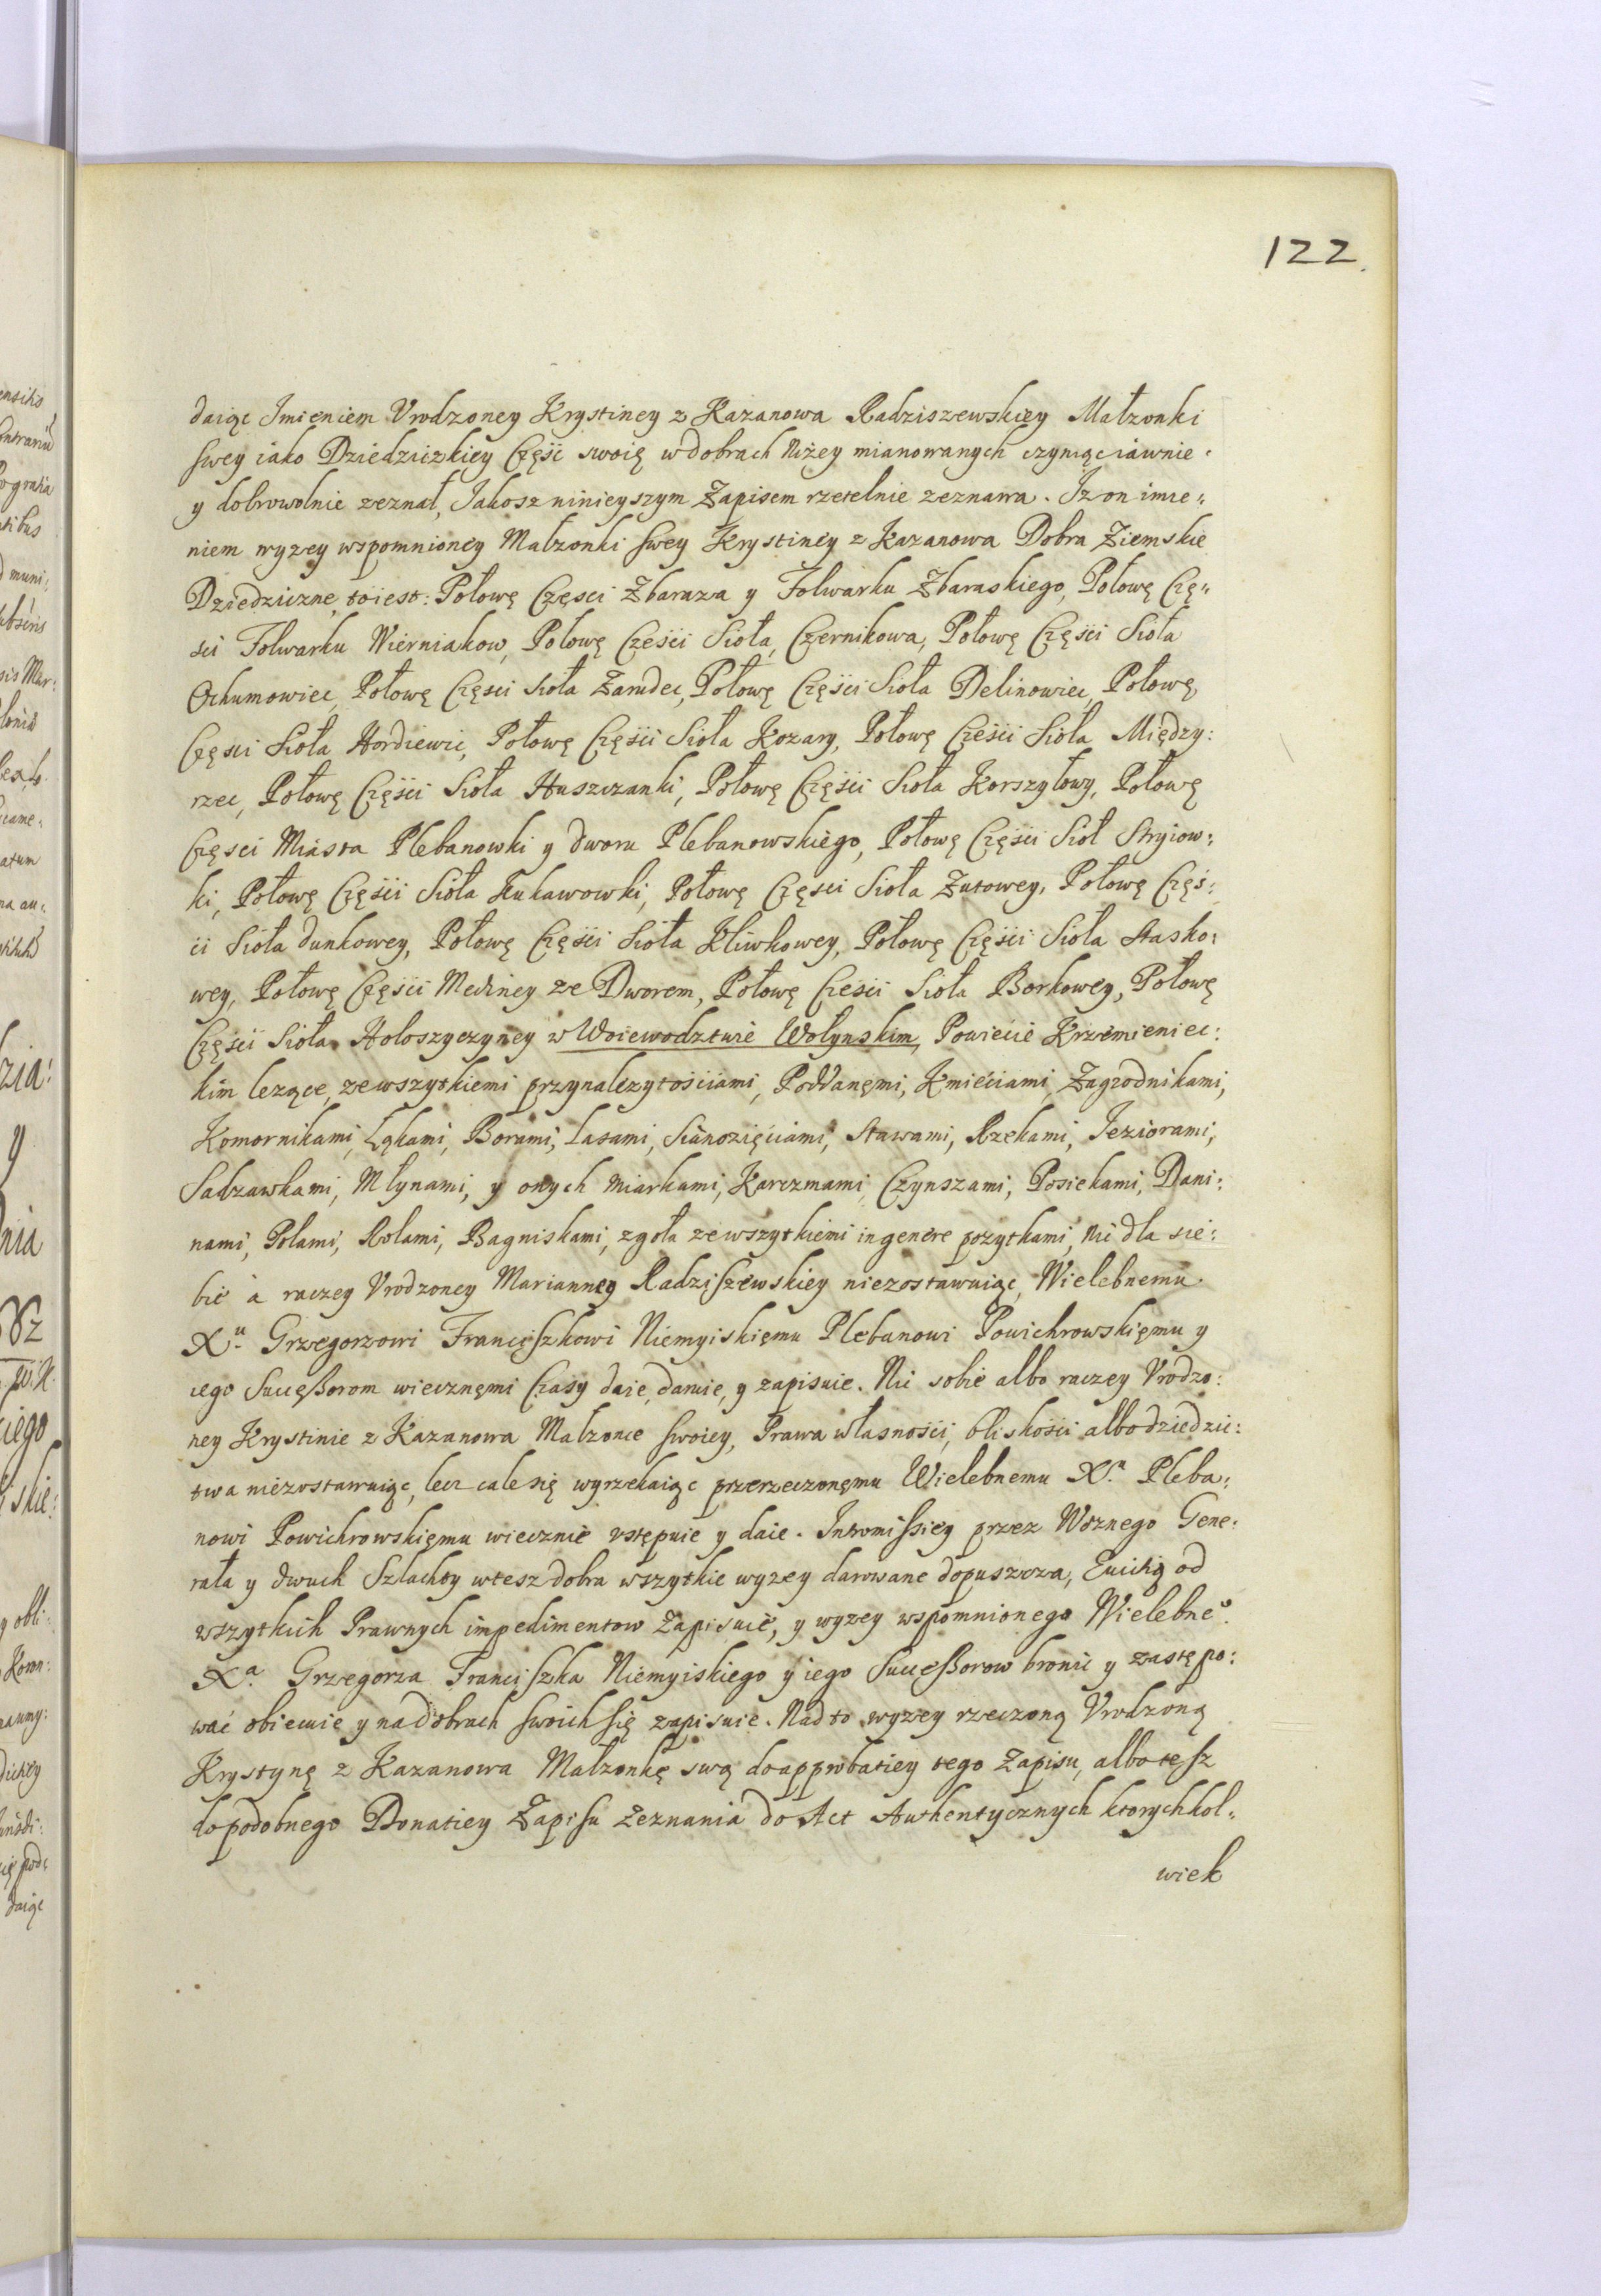 122.
daiąc Jmieniem Vrodzoney Krystiney z Kazanowa Radziszewskiey Małzonki
swey iako Dziedziczkiey Część swoię w dobrach Niżey mianowanych czyniąc iawnie
y dobrowolnie zeznał, Jakosz ninieyszym Zapisem rzetelnie zeznawa. Jz on imie„
niem wyzey wspomnioney Małzonki swey Krystiney z Kazanowa Dobra Ziemskie
Dziedziczne, to iest: Połowę Częsci Zbaraza y Folwarku Zbaraskiego, Połowę Czę„
sci Folwarku Wierniakow, Połowę Cześci Sioła, Czernikowa, Połowę Częśći Sioła
Ochumowiec, Połowę Częsci sioła Zarudec, Połowę Częśći Sioła Delinowiec, Połowę,
Częsci Sioła Hordiewic, Połowę Częśći Sioła Kozary, Połowę Cześći Sioła Między:
rzec, Połowę Częśći Sioła Huszczanki, Połowę Częśći Sioła Korszyłowy, Połowę
Częsci Miasta Plebanowki y dworu Plebanowskiego, Połowę Częśći Sioł Stryiow:
ki, Połowę Częśći Sioła Kukawowki, Połowę Częsci Sioła Zutowey, Połowę Częś:
ći Sioła dunkowey, Połowę Częśći Sioła Kliwkowey, Połowę Częśći Sioła Stasko:
wey, Połowę Częśći Mediney ze Dworem, Połowę Cześci Sioła Borkowey, Połowę
Częśći Sioła Holoszyczyney w Woiewodztwie Wołynskim, Powiećie Krzemieniec:
kim lezące, ze wszytkiemi przynalezytośćiami, Poddanęmi, Kmiećiami, Zagrodnikami,
Komornikami, Łąkami, Borami, Lasami, Sianozięćiami, Stawami, Rzekami, Jeziorami,
Sadzawkami, Młynami, y onych miarkami, Karczmami, Czynszami, Posiekami, Dani:
nami, Polami, Rolami, Bagniskami, zgoła ze wszytkiemi in genere pozytkami, Nic dla sie:
bie a raczey Vrodzoney Marianney Radziszewskiey niezostawuiąc, Wielebnemu
Xu Grzegorzowi Franciszkowi Niemyiskięmu Plebanowi Powichrowskięmu y
iego Succeßorom wiecznęmi Czasy daie, daruie, y zapisuie. Nic sobie albo raczey Vrodzo:
ney Krystinie z Kazanowa Małzonce swoiey, Prawa własnośći, bliskośći albo dziedzic:
twa niezostawuiąc, lecz cale się wyrzekaiąc przerzeczonęmu Wielebnemu Xu Pleba:
nowi Powichrowskięmu wiecznie vstępuie y daie. Intromissiey przez Woznego Gene:
rała y dwuch Szlachty wtesz dobra wszytkie wyzey darowane dopuszcza, Euictią od
wszytkich Prawnych impedimentow Zapisuie, y wyzey wspomnionego Wielebneo
Xa Grzegorza Franciszka Niemyiskiego y iego Succeßorow bronić y zastępo:
wać obiecuie y na dobrach swoich się zapisuie. Nad to wyzey rzeczoną Vrodzoną
Krystynę z Kazanowa Małzonkę swą do approbatiey tego Zapisu, albo tesz
do podobnego Donatiey Zapisu zeznania do Act Authentycznych ktorychkol„
wiek